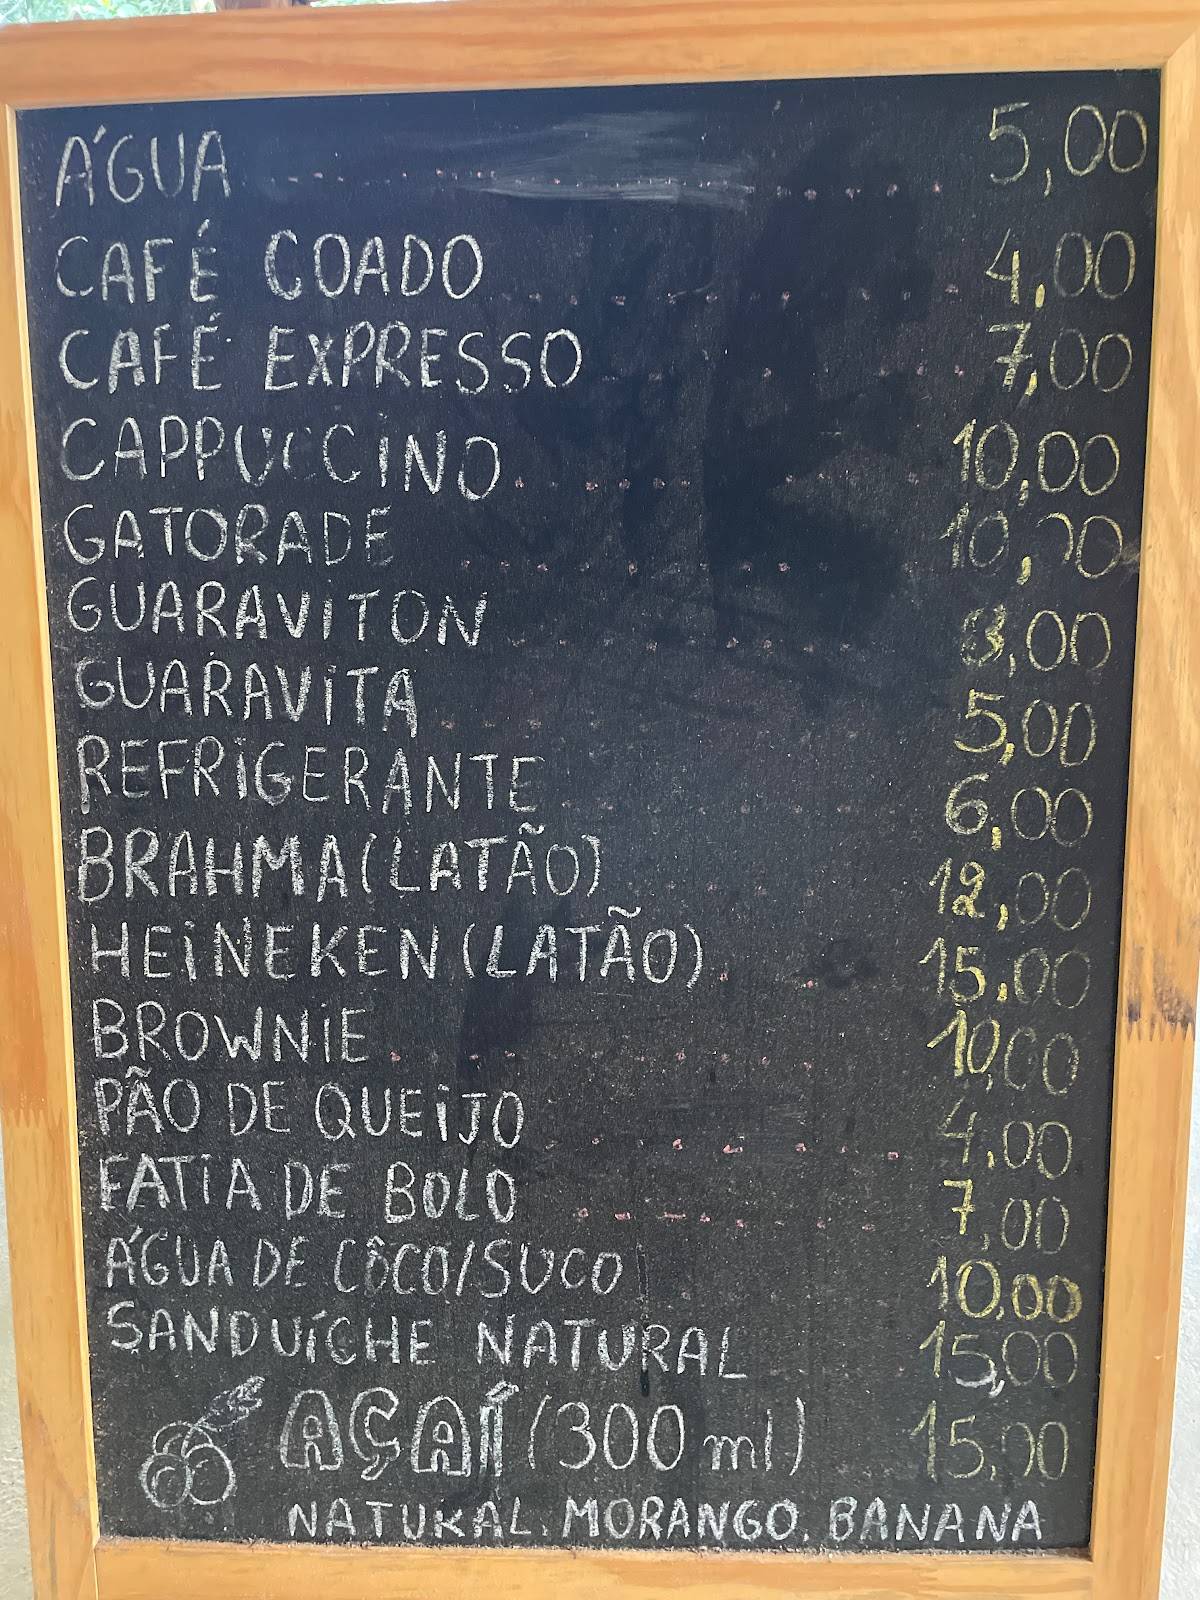 ÁGUA 5,00
CAFÉ COADO 4,00
CAFÉ EXPRESSO 7,00
CAPPUCCINO 10,00
GATORADE 10,00
GUARAVITON 8,00
GUARAVITA 5,00
REFRIGERANTE 6,00
BRAHMA (LATÃO) 12,00
HEINEKEN (LATÃO) 15,00
BROWNIE 10,00
PÃO DE QUEIJO 4,00
FATIA DE BOLO 7,00
ÁGUA DE CÔCO/SUCO 10,00
SANDUÍCHE NATURAL 15,00
AÇAÍ (300 ml) 15,00
NATURAL, MORANGO, BANANA